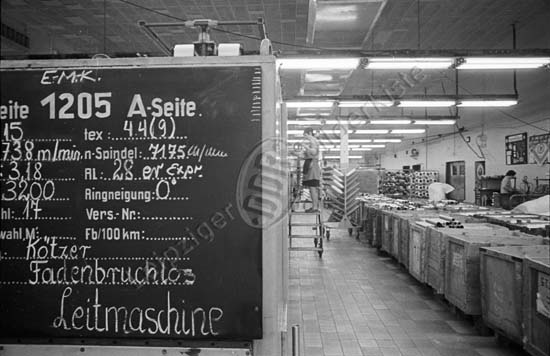 E.M.K.
eite 1205 A-Seite
15 tex: 44(9)
738 m/min. n-Spindel: 7175 U/min
318 RL: 28 er Expr.
3200 Ringneigung: 0
hl: 17 Vers.-Nr:
wahl, M: Fb/100 km:
Kötzer
Fadenbruchlos
Leitmaschine